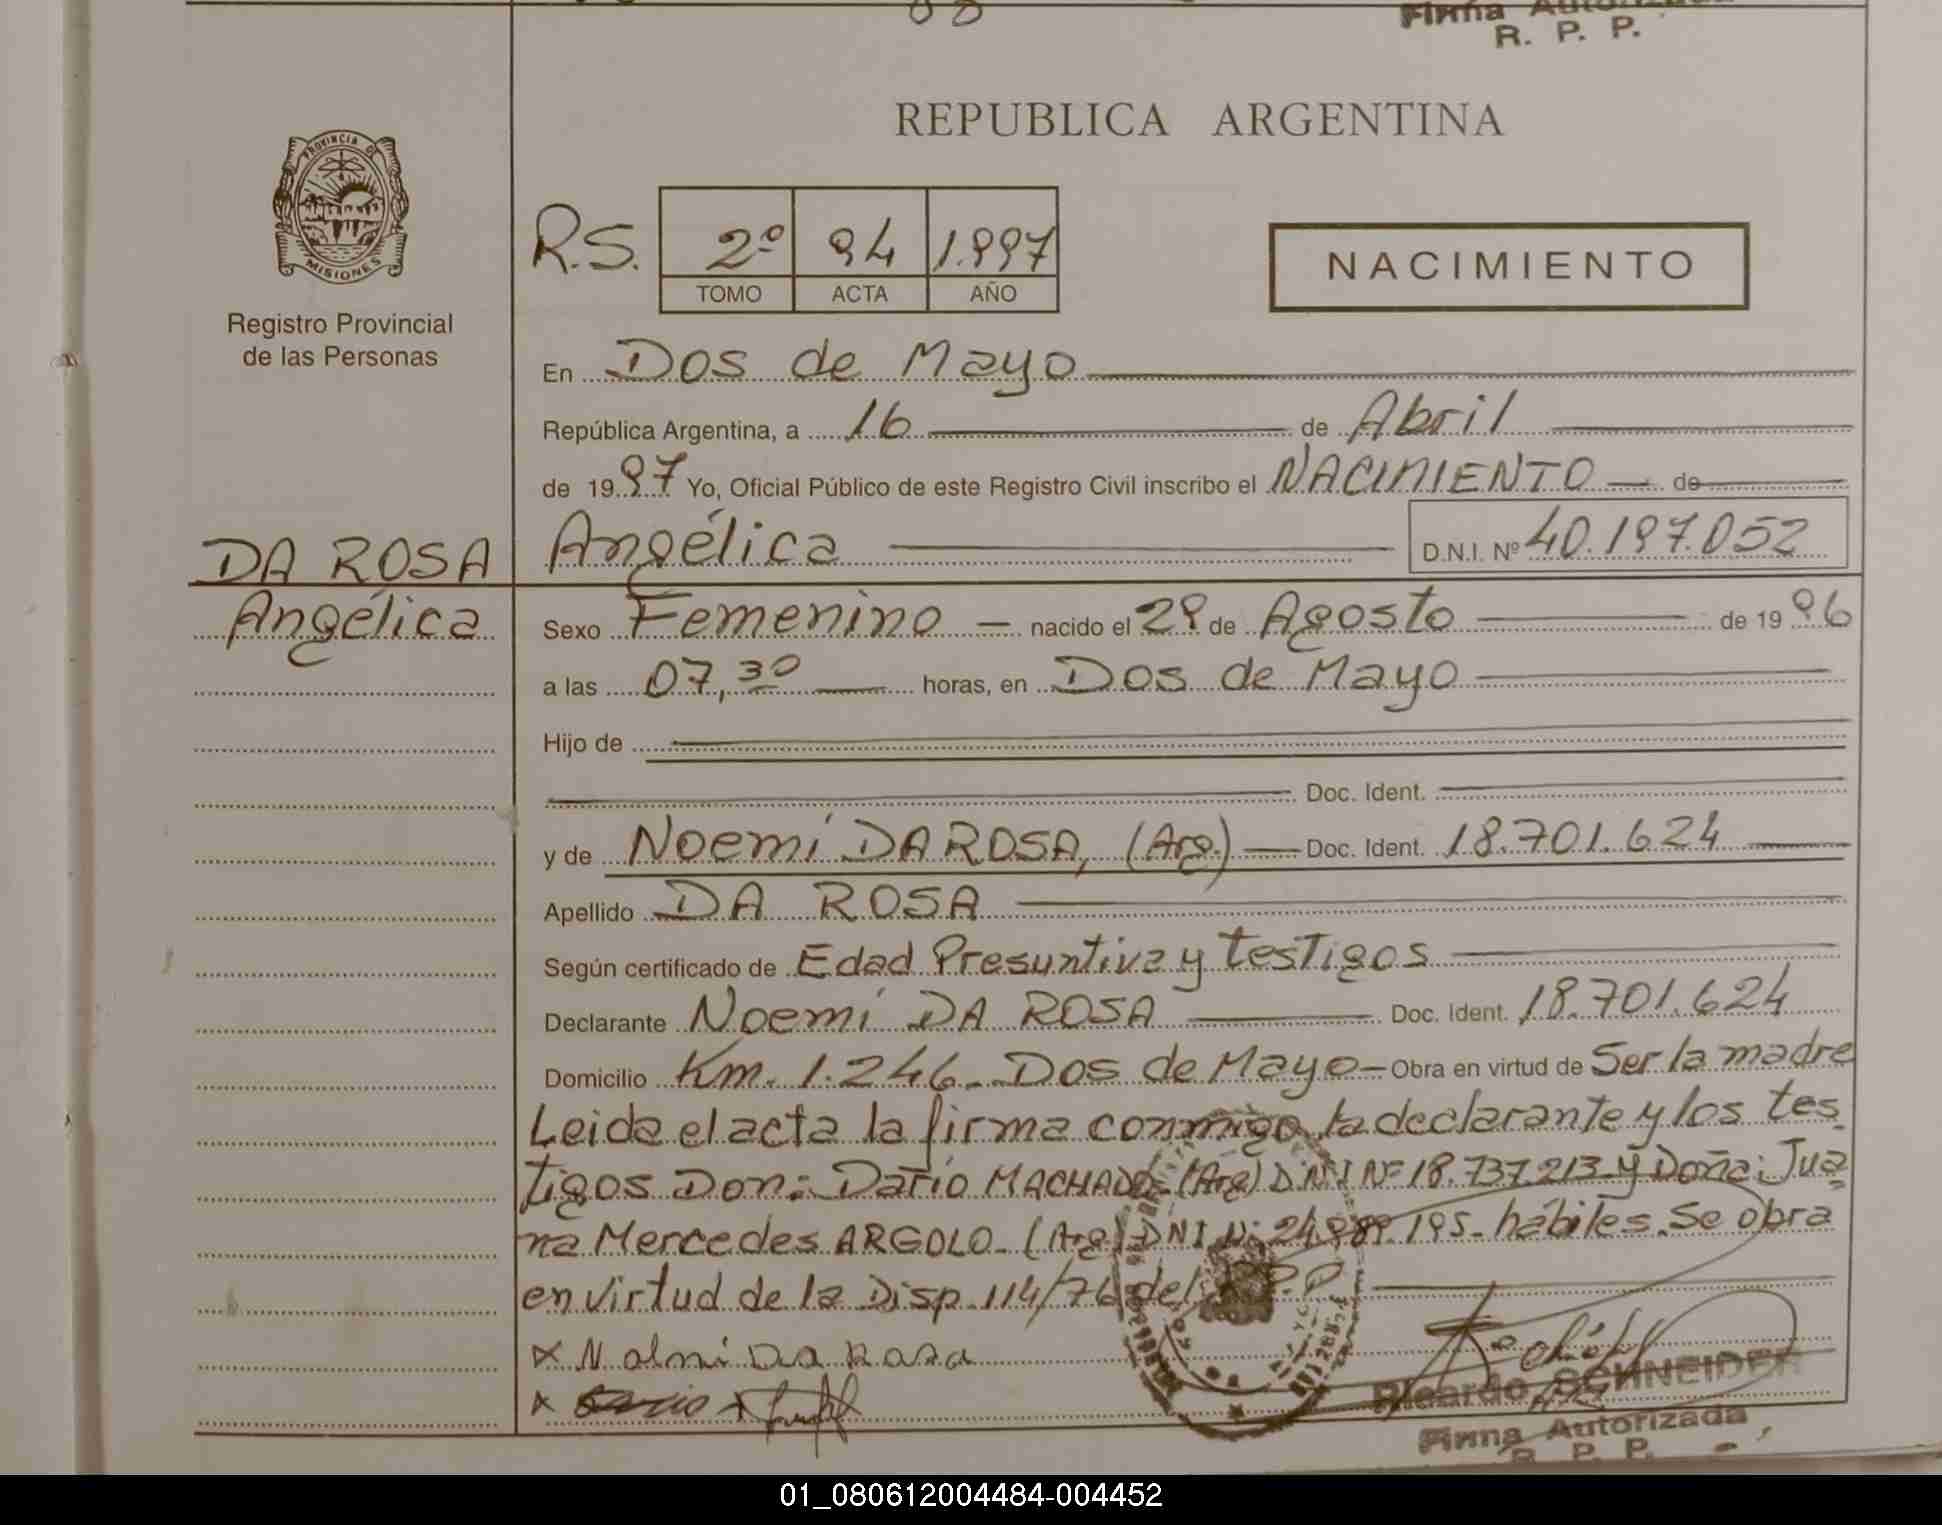 Firma Autorizada
R. P. P.
REPUBLICA ARGENTINA
PROVINCIA DE
MISIONES
Registro Provincial
de las Personas
R.S. 2º 94 1.997
TOMO ACTA AÑO
NACIMIENTO
En Dos de Mayo
República Argentina, a 16 de Abril
de 1997 Yo, Oficial Público de este Registro Civil inscribo el NACIMIENTO de
DA ROSA Angélica D.N.I. Nº 40.197.052
Angélica Sexo Femenino nacido el 29 de Agosto de 1996
a las 07,30 horas, en Dos de Mayo
Hijo de
Doc. Ident.
y de Noemí DA ROSA, (Arg.) Doc. Ident. 18.701.624
Apellido DA ROSA
Según certificado de Edad Presuntiva y testigos
Declarante Noemí DA ROSA Doc. Ident. 18.701.624
Domicilio Km. 1.246 - Dos de Mayo - Obra en virtud de Ser la madre
Leida el acta la firma conmigo la declarante y los tes
tigos Don: Darío MACHADO (Arg) DNI Nº 18.737.213 y Doña: Jua
na Mercedes ARGOLO - (Arg) DNI Nº 24.989.195 - hábiles. Se obra
en virtud de la Disp. 114/76 del R.P.P.
x Noemi Da Rosa
Ricardo SCHNEIDER
Firma Autorizada
R. P. P.
01_080612004484-004452